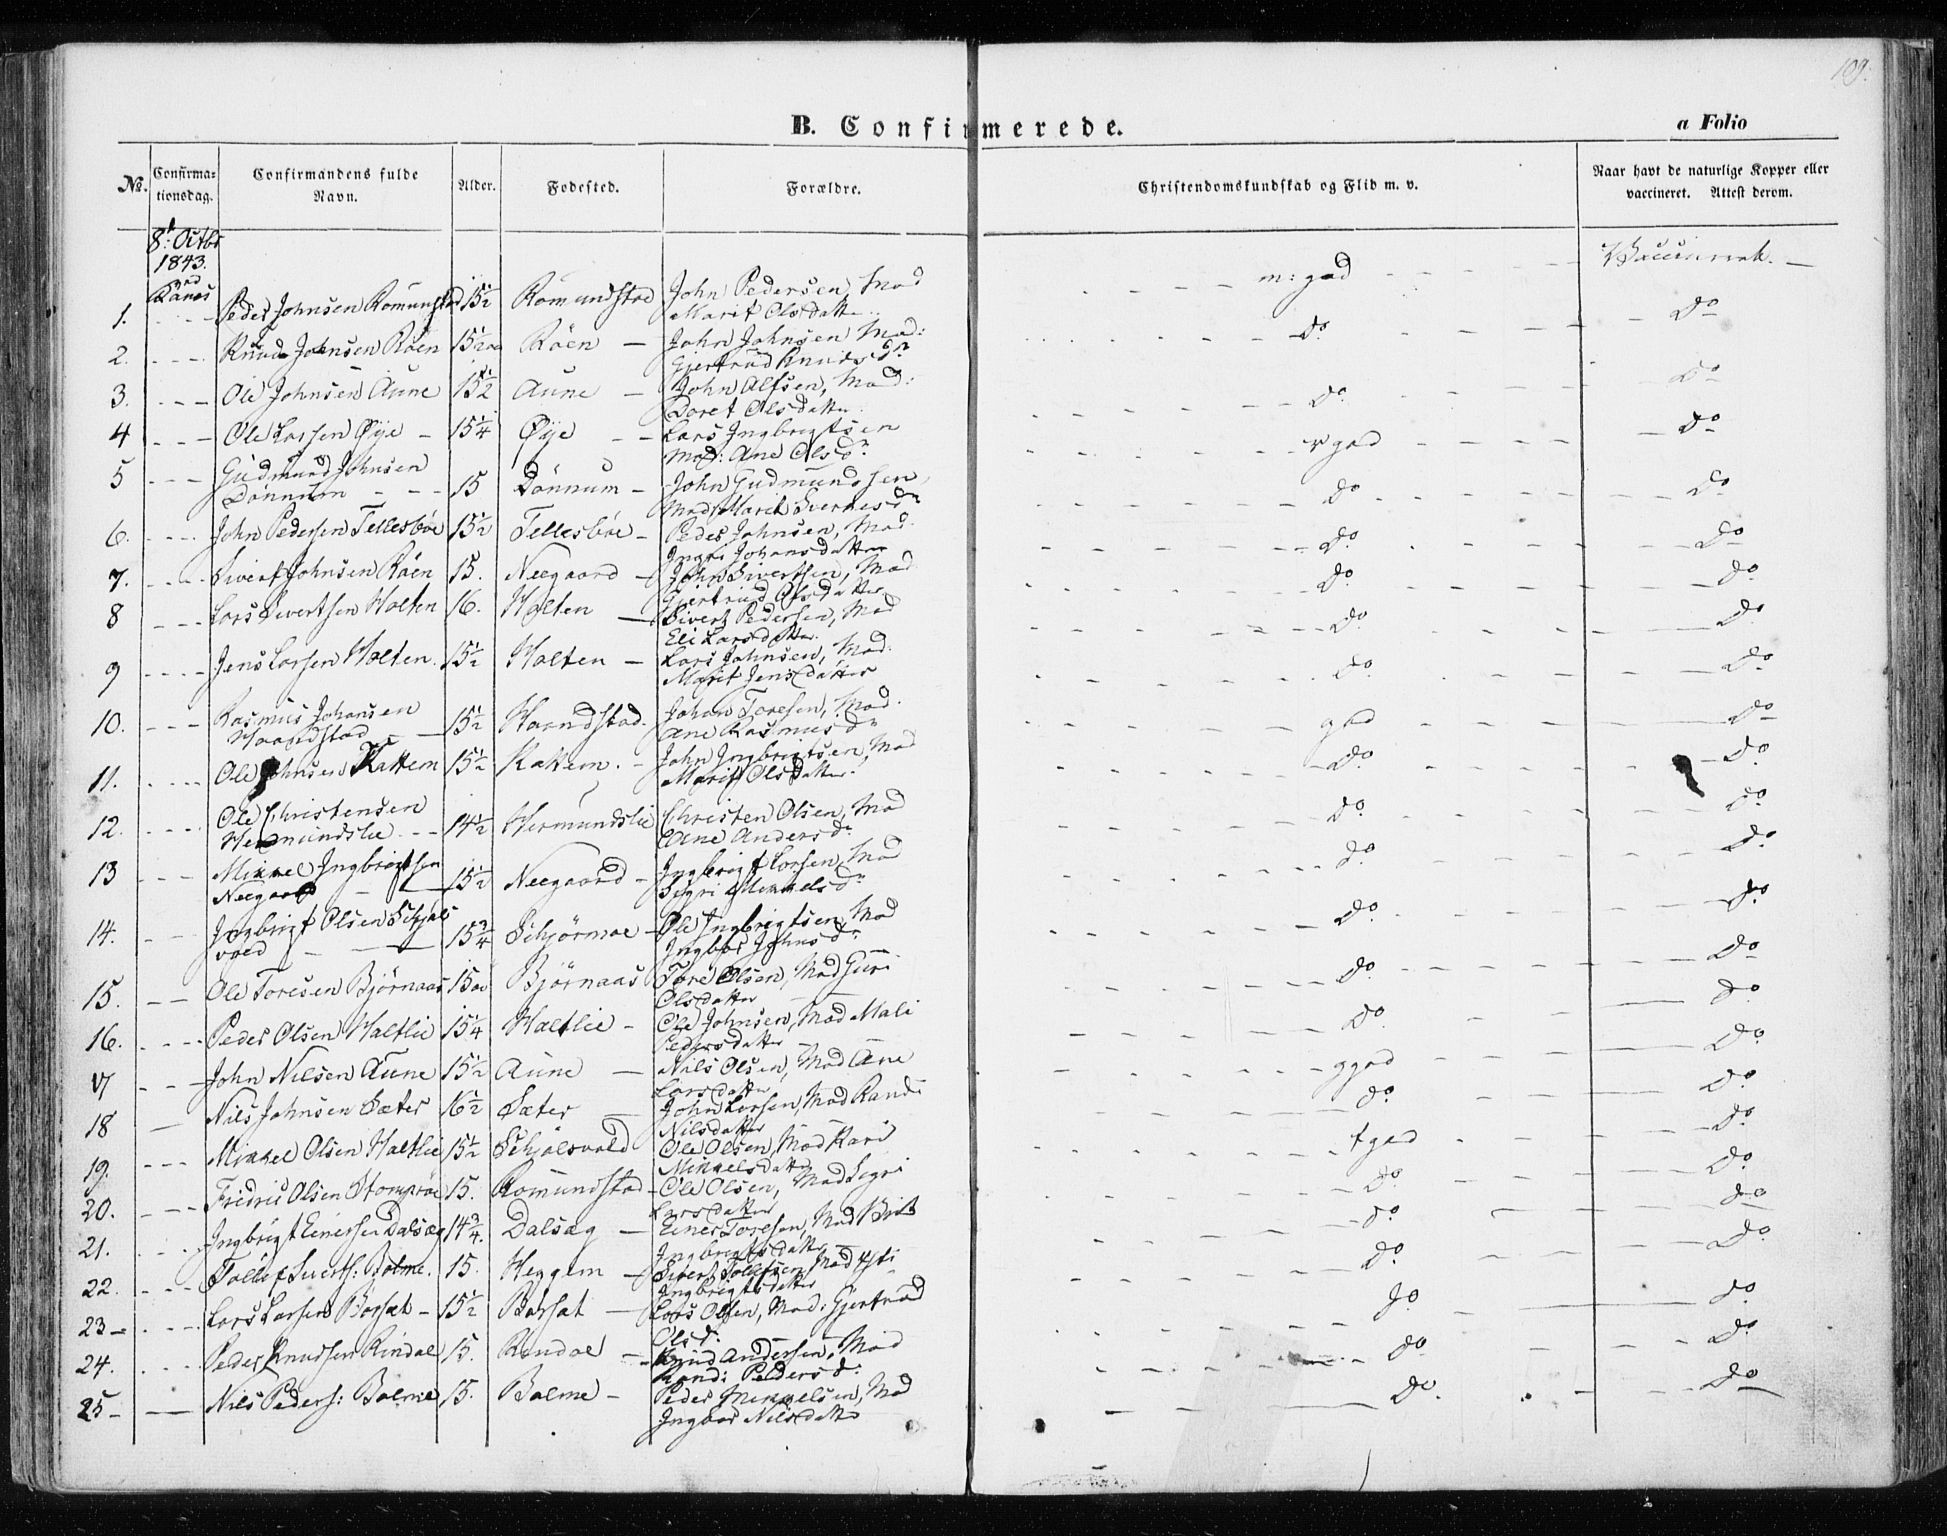 109.
B. Confirmerede.
a Folio
No. Confirmationsdag. Confirmandens fulde Navn. Alder. Fødested. Forældre. Christendomskundskab og Flid m. v. Naar havt de naturlige Kopper eller vaccineret. Attest derom.
8: Octbr
1843.
ved
Ranes
1. Peder Johnsen Romundstad 15½ Romundstad John Pedersen, Mod m: god Vaccineret
Marit Olsdatter
2. Knud Johnsen Röen 15½ Röen John Johnsen Mod: do do
Gjertrud Knudsdr
3. Ole Johnsen Aune 15½ Aune John Olfsen, Mod: do do
Doret Olsdatter
4 Ole Larsen Øÿe 15¼ Øÿe Lars Ingbrigtsen god do
Mod: Ane Olsdr
5 Gudmund Johnsen
Dönnum 15 Dönnum John Gudmundsen, do do
Mod Marit Sivertsdr
6. John Pedersen Tellesböe 15½ Tellesböe Peder Johnsen, Mod. do do
Ingri Johansdatter
7. Sivert Johnsen Röen 15. Neegaard John Sivertsen, Mod do do
Gjertrud Olsdatter
8 Lars Sivertsen Holten 16. Holten Sivert Pedersen, Mod do do
Eli Larsdatter
9 Jens Larsen Holten. 15½ Holten Lars Johnsen, Mod: do do
Marit Jensdatter
10. Rasmus Johansen
Haandstad 15½ Haandstad. Johan Toresen, Mod. god do
Ane Rasmusdr
11. Ole Johnsen Kattem 15½ Kattem. John Ingbrigtsen, Mod do do
Marit Olsdatter
12. Ole Christensen
Hermundslie 14½ Hermundslie Christen Olsen, Mod do do
Ane Andersdr
13 Mikkel Ingbrigtsen
Neegaard 15½ Neegaard Ingbrigt Larsen, Mod do do
Sigri Mikkelsdr
14. Ingbrigt Olsen Schjöls
vold 15¾ Schjörmoe Ole Ingbrigtsen, Mod do do
Ingbor Johnsdr
15. Ole Toresen Björnaas 15 Björnaas Tore Olsen, Mod Guri do do
Olsdatter
16. Peder Olsen Haltlie 15¼ Haltlie Ole Johnsen, Mod Mali do do
Pedersdatter
17 John Nilsen Aune 15½ Aune Nils Olsen, Mod Ane ggod do
Larsdatter
18 Nils Johnsen Sæter 16½ Sæter John Larsen, Mod Randi do do
Nilsdatter
19. Mikkel Olsen Haltlie 15½ Schjölsvold Ole Olsen, Mod Kari tgod do
Mikkelsdatter
20. Fredric Olsen Stompröe 15. Romundstad Ole Olsen, Mod Sigri do do
Larsdatter
21. Ingbrigt Einersen Dalsæg 14¾. Dalsæg Einer Toresen, Mod Brit do do
Ingbrigtsdatter
22. Tollef Sivertss: Bolme. 15. Heggem Sivert Tollefsen, Mod do do
Ingbrigtsdatter
23 Lars Larsen Borsæt 15½ Borsæt Lars Olsen, Mod: Gjertrud do do
Olsd:
24. Peder Knudsen Rindal 15. Rindal Knud Andersen, Mod do do
Rand: Pedersd:
25 Nils Peders: Bolme 15. Bolme Peder Mikkelsen, Mod do do
Ingbor Nilsdatter